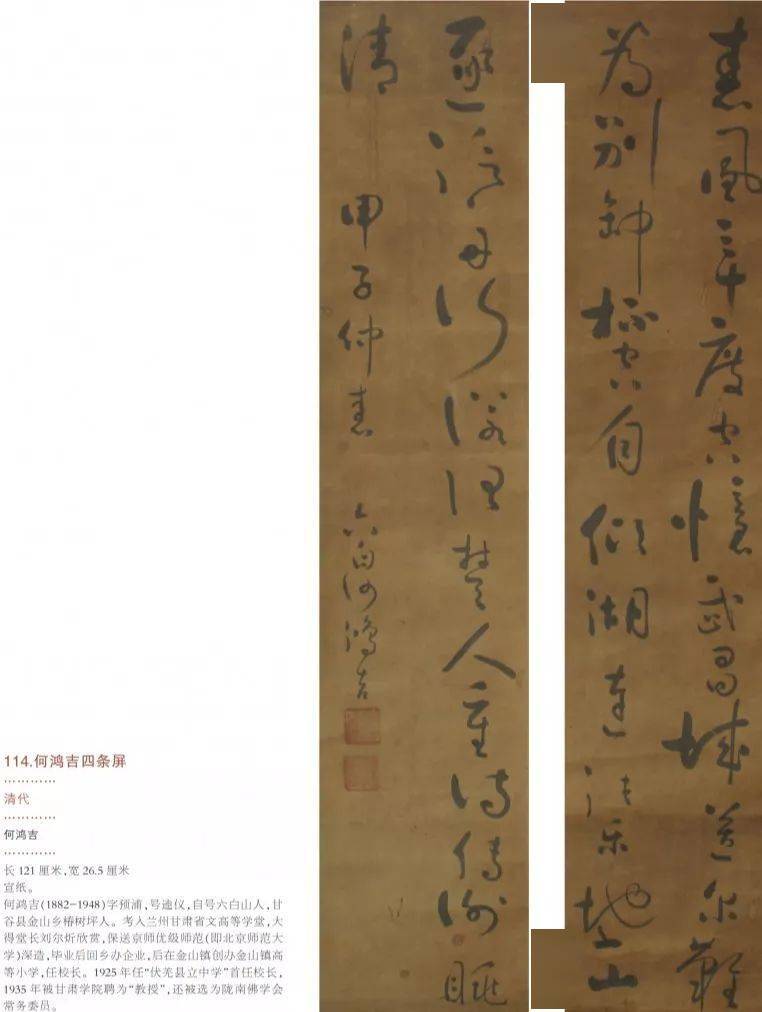 春风三十度空忆武昌城送尔难
为别衔杯空自倾湖连张乐地山
逐泛舟行诺谓楚人重诗传谢朓
清 甲子仲春 六白何鸿吉
114.何鸿吉四条屏
清代
何鸿吉
长 121 厘米,宽 26.5 厘米
宣纸。
何鸿吉(1882-1948)字预浦,号逵仪,自号六白山人,甘
谷县金山乡椿树坪人。考入兰州甘肃省文高等学堂,大
得堂长刘尔炘欣赏,保送京师优级师范(即北京师范大
学)深造,毕业后回乡办企业,后在金山镇创办金山镇高
等小学,任校长。1925 年任“伏羌县立中学”首任校长,
1935 年被甘肃学院聘为“教授”,还被选为陇南佛学会
常务委员。